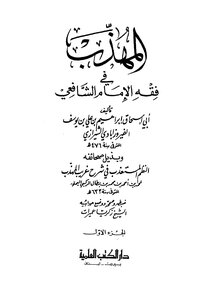 المهذب
في
فقه الإمام الشافعي
تأليف
أبي إسحاق إبراهيم بن علي بن يوسف
الفيروزآبادي الشيرازي
المتوفى سنة ٤٧٦ هـ
وبذيل صحائفه
النظم المستعذب في شرح غريب المهذب
ضبطه وصححه ووضع حواشيه
الشيخ زكريا عميرات
الجزء الأول
دار الكتب العلمية